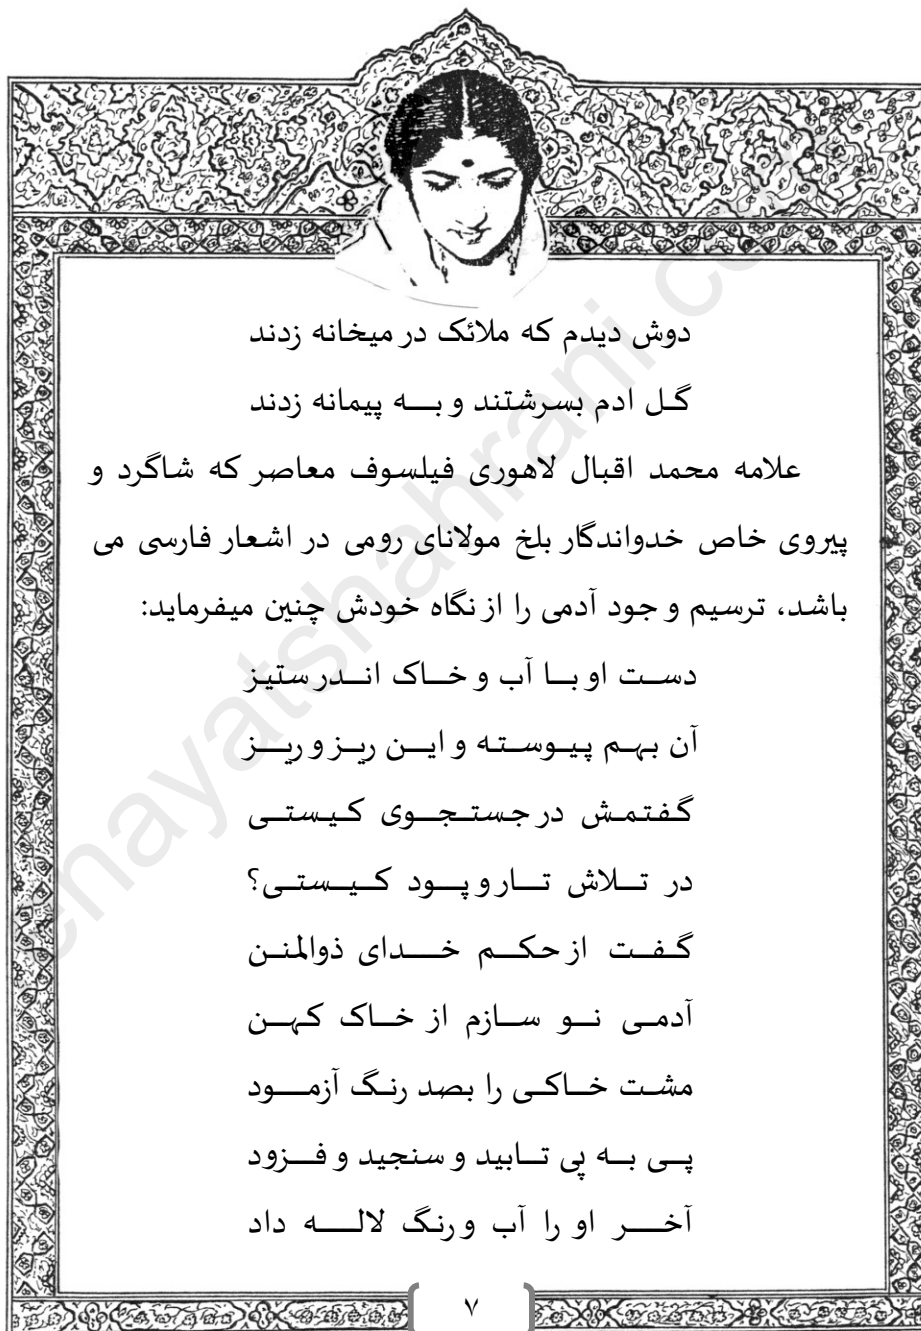 دوش دیدم که ملائک در میخانه زدند
گل ادم بسرشتند و به پیمانه زدند
علامه محمد اقبال لاهوری فیلسوف معاصر که شاگرد و
پیروی خاص خدواندگار بلخ مولانای رومی در اشعار فارسی می
باشد، ترسیم و جود آدمی را از نگاه خودش چنین میفرماید:
دست او با آب و خاک اندر ستیز
آن بهم پیوسته و این ریز و ریز
گفتمش در جستجوی کیستی
در تلاش تار و پود کیستی؟
گفت از حکم خدای ذوالمنن
آدمی نو سازم از خاک کهن
مشت خاکی را بصد رنگ آزمود
پی به پی تابید و سنجید و فزود
آخر او را آب و رنگ لاله داد
۷